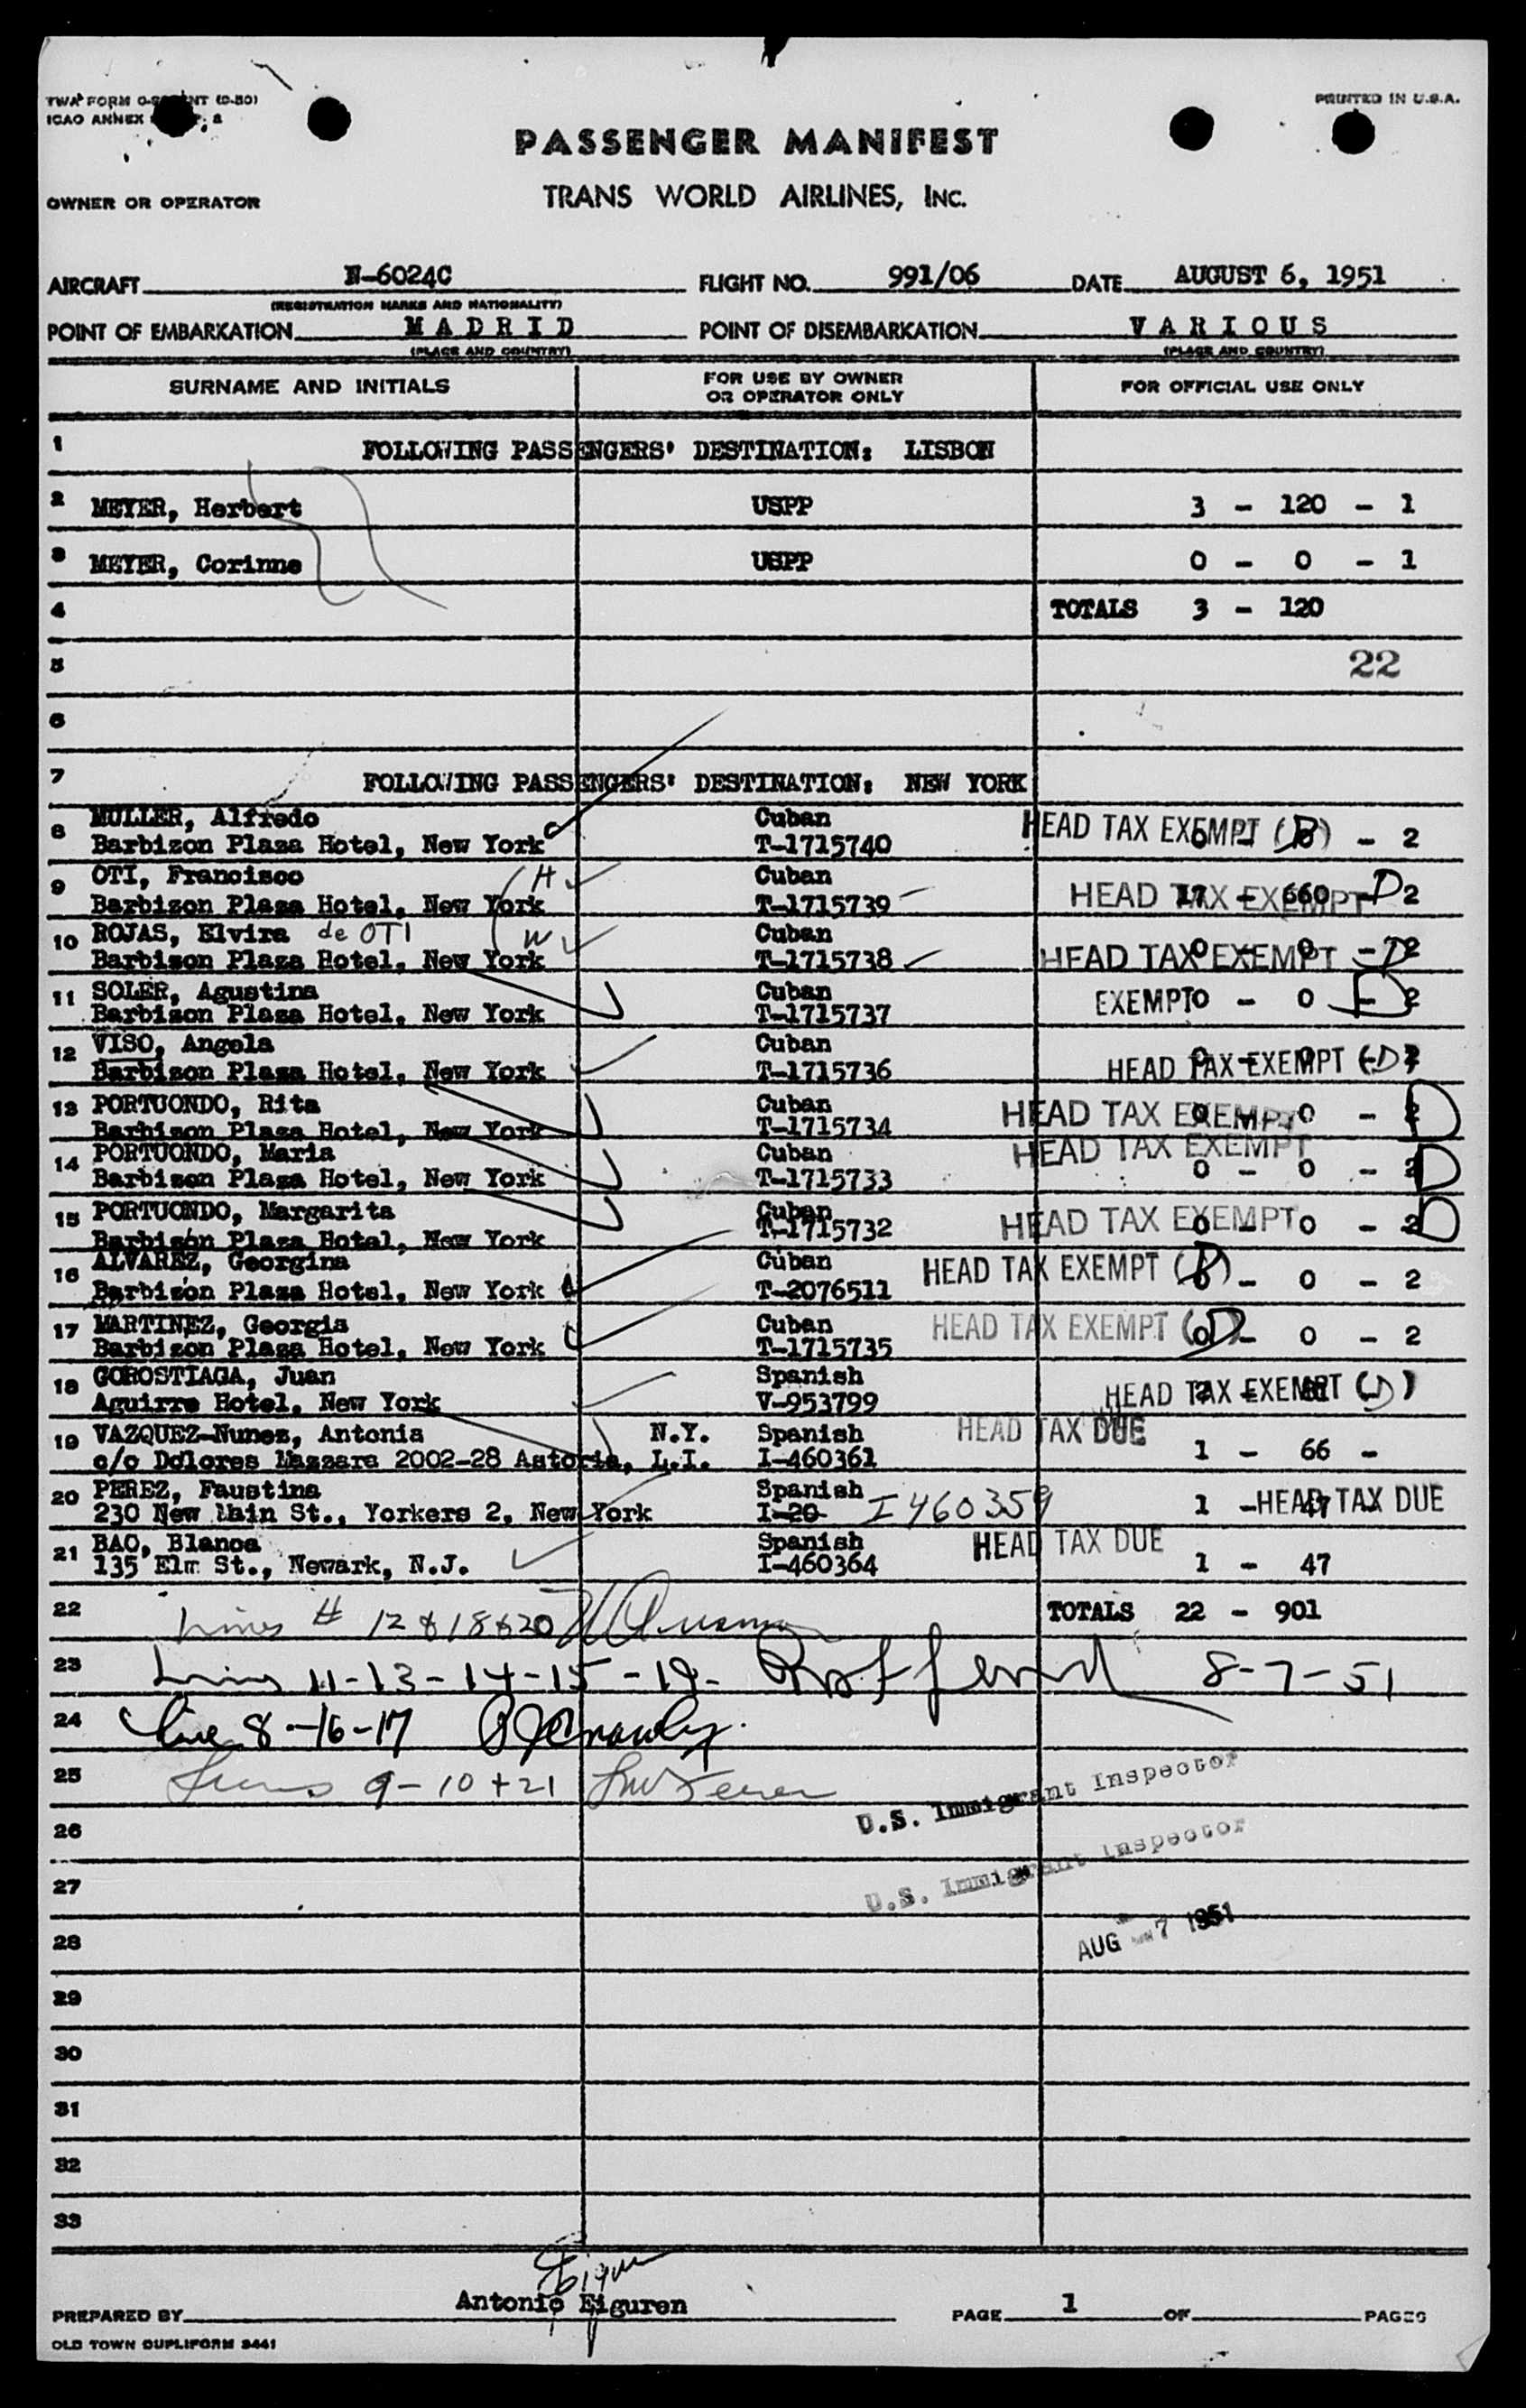 TWA FORM
PRINTED IN U.S.A.
ICAO ANNEX
PASSENGER MANIFEST
OWNER OR OPERATOR
TRANS WORLD AIRLINES, INC.
AIRCRAFT N-6024C FLIGHT NO. 991/06 DATE AUGUST 6, 1951
(REGISTRATION MARKS AND NATIONALITY)
POINT OF EMBARKATION MADRID POINT OF DISEMBARKATION VARIOUS
(PLACE AND COUNTRY) (PLACE AND COUNTRY)
SURNAME AND INITIALS FOR USE BY OWNER OR OPERATOR ONLY FOR OFFICIAL USE ONLY
1 FOLLOWING PASSENGERS' DESTINATION: LISBON
2 MEYER, Herbert USPP 3 - 120 - 1
3 MEYER, Corinne USPP 0 - 0 - 1
4 TOTALS 3 - 120
5 22
6
7 FOLLOWING PASSENGERS' DESTINATION: NEW YORK
8 MULLER, Alfredo Cuban HEAD TAX EXEMPT (D)
Barbizon Plaza Hotel, New York T-1715740 0 - 0 - 2
9 OTI, Francisco (H Cuban HEAD TAX EXEMPT D
Barbizon Plaza Hotel, New York T-1715739 17 - 660 - 2
10 ROJAS, Elvira de OTI (W Cuban HEAD TAX EXEMPT D
Barbizon Plaza Hotel, New York T-1715738 0 - 0 - 2
11 SOLER, Agustina Cuban EXEMPT D
Barbizon Plaza Hotel, New York T-1715737 0 - 0 - 2
12 VISO, Angela Cuban HEAD TAX EXEMPT (D)
Barbizon Plaza Hotel, New York T-1715736 0 - 0 - 2
13 PORTUONDO, Rita Cuban HEAD TAX EXEMPT D
Barbizon Plaza Hotel, New York T-1715734 0 - 0 - 2
14 PORTUONDO, Maria Cuban HEAD TAX EXEMPT D
Barbizon Plaza Hotel, New York T-1715733 0 - 0 - 2
15 PORTUONDO, Margarita Cuban HEAD TAX EXEMPT D
Barbizon Plaza Hotel, New York T-1715732 0 - 0 - 2
16 ALVAREZ, Georgina Cuban HEAD TAX EXEMPT (D)
Barbizon Plaza Hotel, New York T-2076511 0 - 0 - 2
17 MARTINEZ, Georgia Cuban HEAD TAX EXEMPT (D)
Barbizon Plaza Hotel, New York T-1715735 0 - 0 - 2
18 GOROSTIAGA, Juan Spanish HEAD TAX EXEMPT (D)
Aguirre Hotel, New York V-953799 2 - 81
19 VAZQUEZ-Nunez, Antonia N.Y. Spanish HEAD TAX DUE
c/o Dolores Mazzara 2002-28 Astoria, L.I. I-460361 1 - 66 -
20 PEREZ, Faustina Spanish HEAD TAX DUE
230 New Main St., Yorkers 2, New York I-20 I 460359 1 - 47
21 BAO, Blanca Spanish HEAD TAX DUE
135 Elm St., Newark, N.J. I-460364 1 - 47
22 Lines # 12 & 18 & 20 TOTALS 22 - 901
23 Lines 11-13-14-15-19- 8-7-51
24 Line 8-16-17
25 Lines 9-10+21
U.S. Immigrant Inspector
26
U.S. Immigrant Inspector
27
28 AUG 7 1951
29
30
31
32
33
PREPARED BY Antonio Eiguren PAGE 1 OF PAGES
OLD TOWN DUPLIFORM 3441